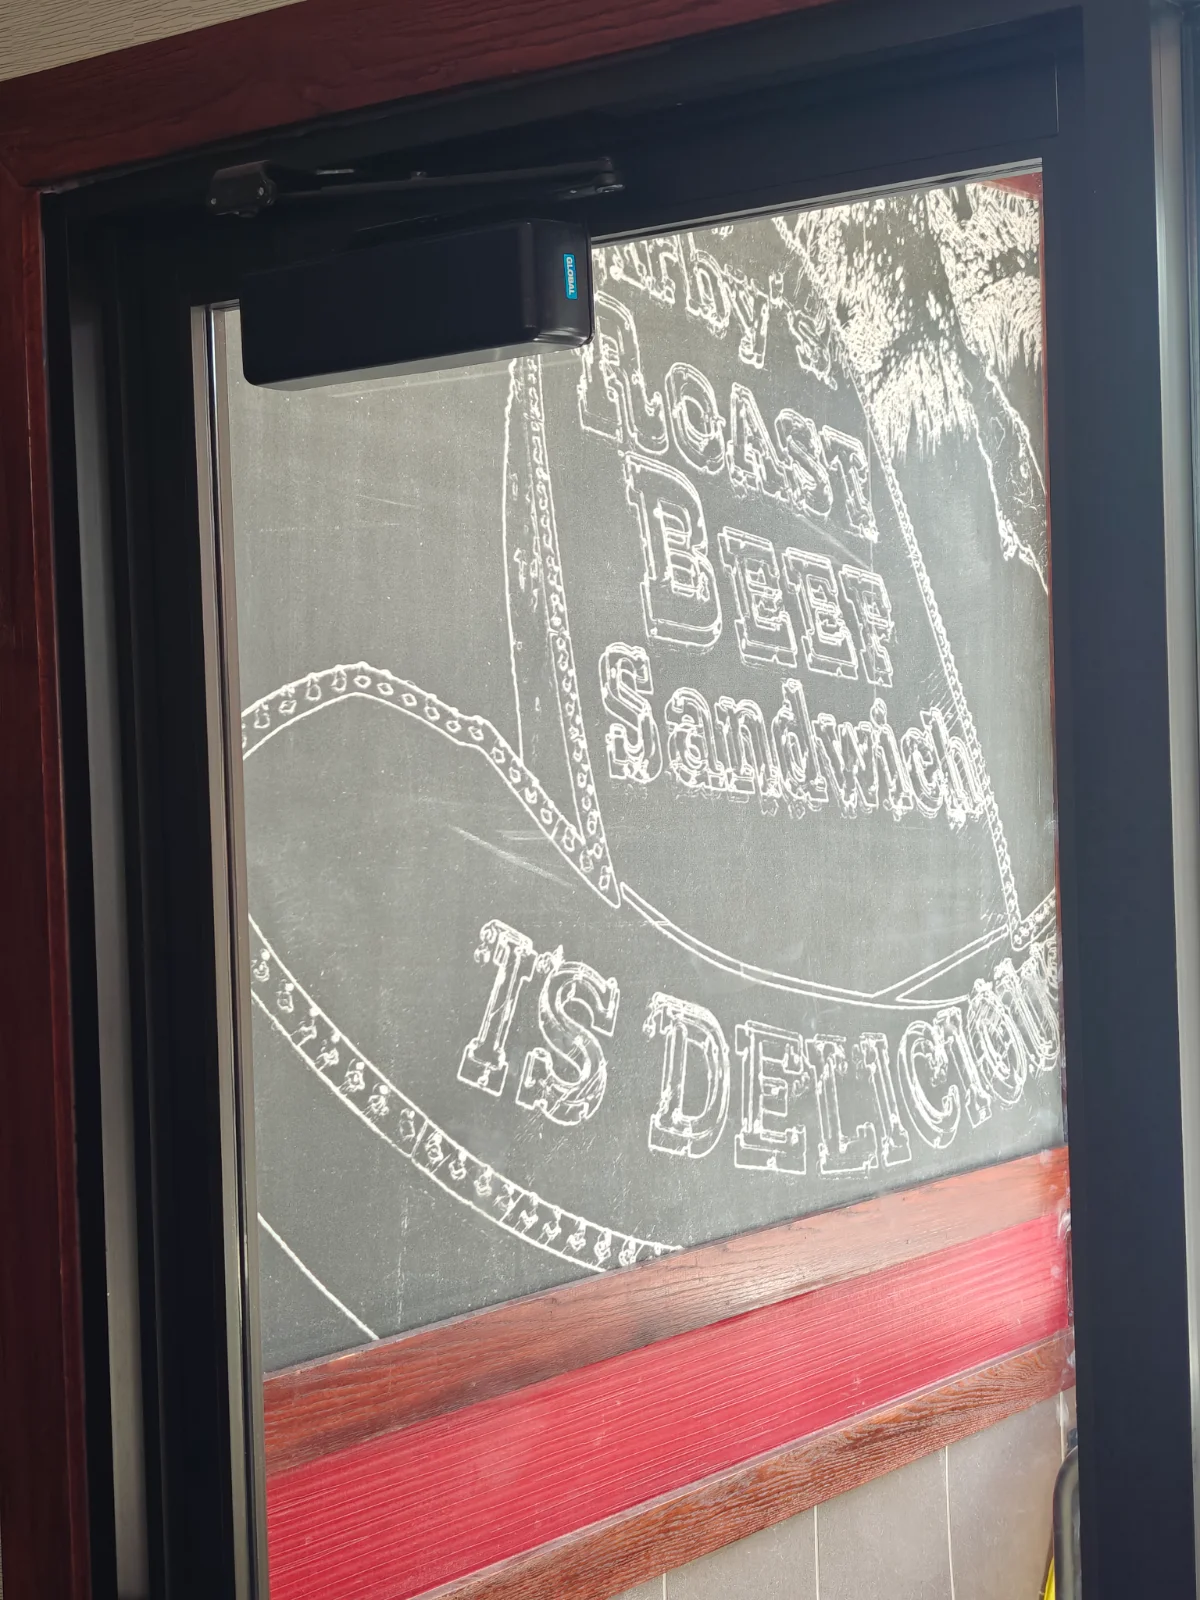 GLOBAL
Arby's
ROAST
BEEF
Sandwich
IS DELICIOUS